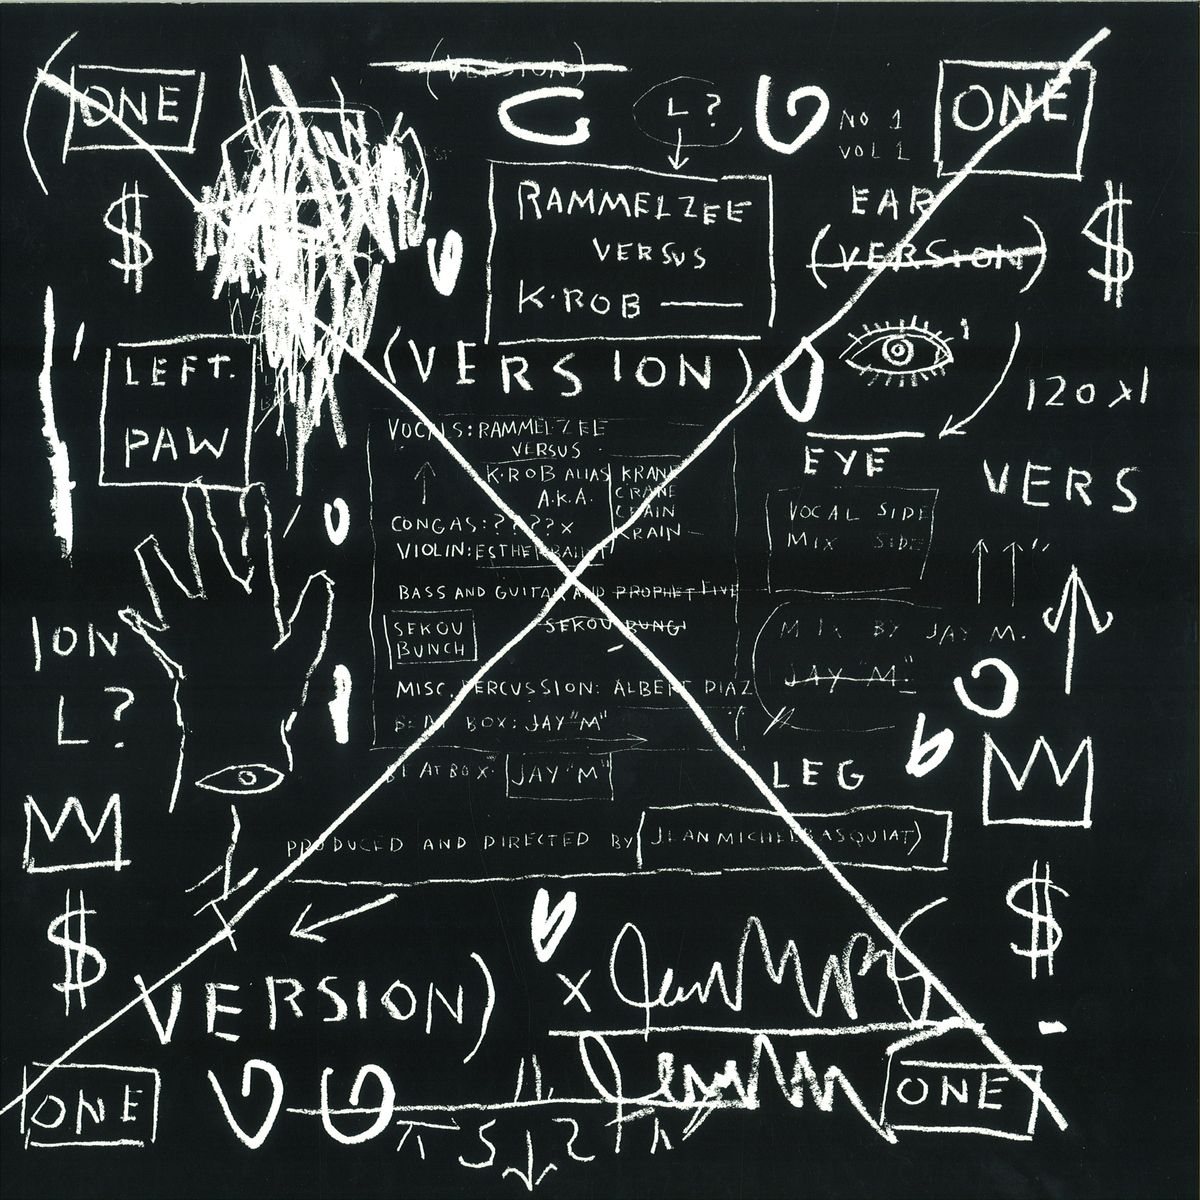 (VERSION)
ONE
L?
NO 1
VOL 1
ONE
RAMMELZEE
VERSUS
K·ROB —
EAR
(VERSION)
$
$
LEFT.
PAW
(VERSION)
120 x 1
VERS
EYE
VOCALS: RAMMELZEE
VERSUS
K·ROB ALIAS KRANE
A.K.A. CRANE
CHAIN
KRAIN
CONGAS: ????x
VIOLIN:
BASS AND GUITAR AND PROPHET FIVE
SEKOU
BUNCH
SEKOU BUNGI
MISC. PERCUSSION: ALBERT DIAZ
BEAT BOX: JAY "M"
BEAT BOX: JAY "M"
VOCAL SIDE
MIX SIDE
MIX BY JAY M.
JAY "M."
ION
L?
LEG
PRODUCED AND DIRECTED BY JEAN MICHEL BASQUIAT)
$
$
VERSION)
x
ONE
ONE